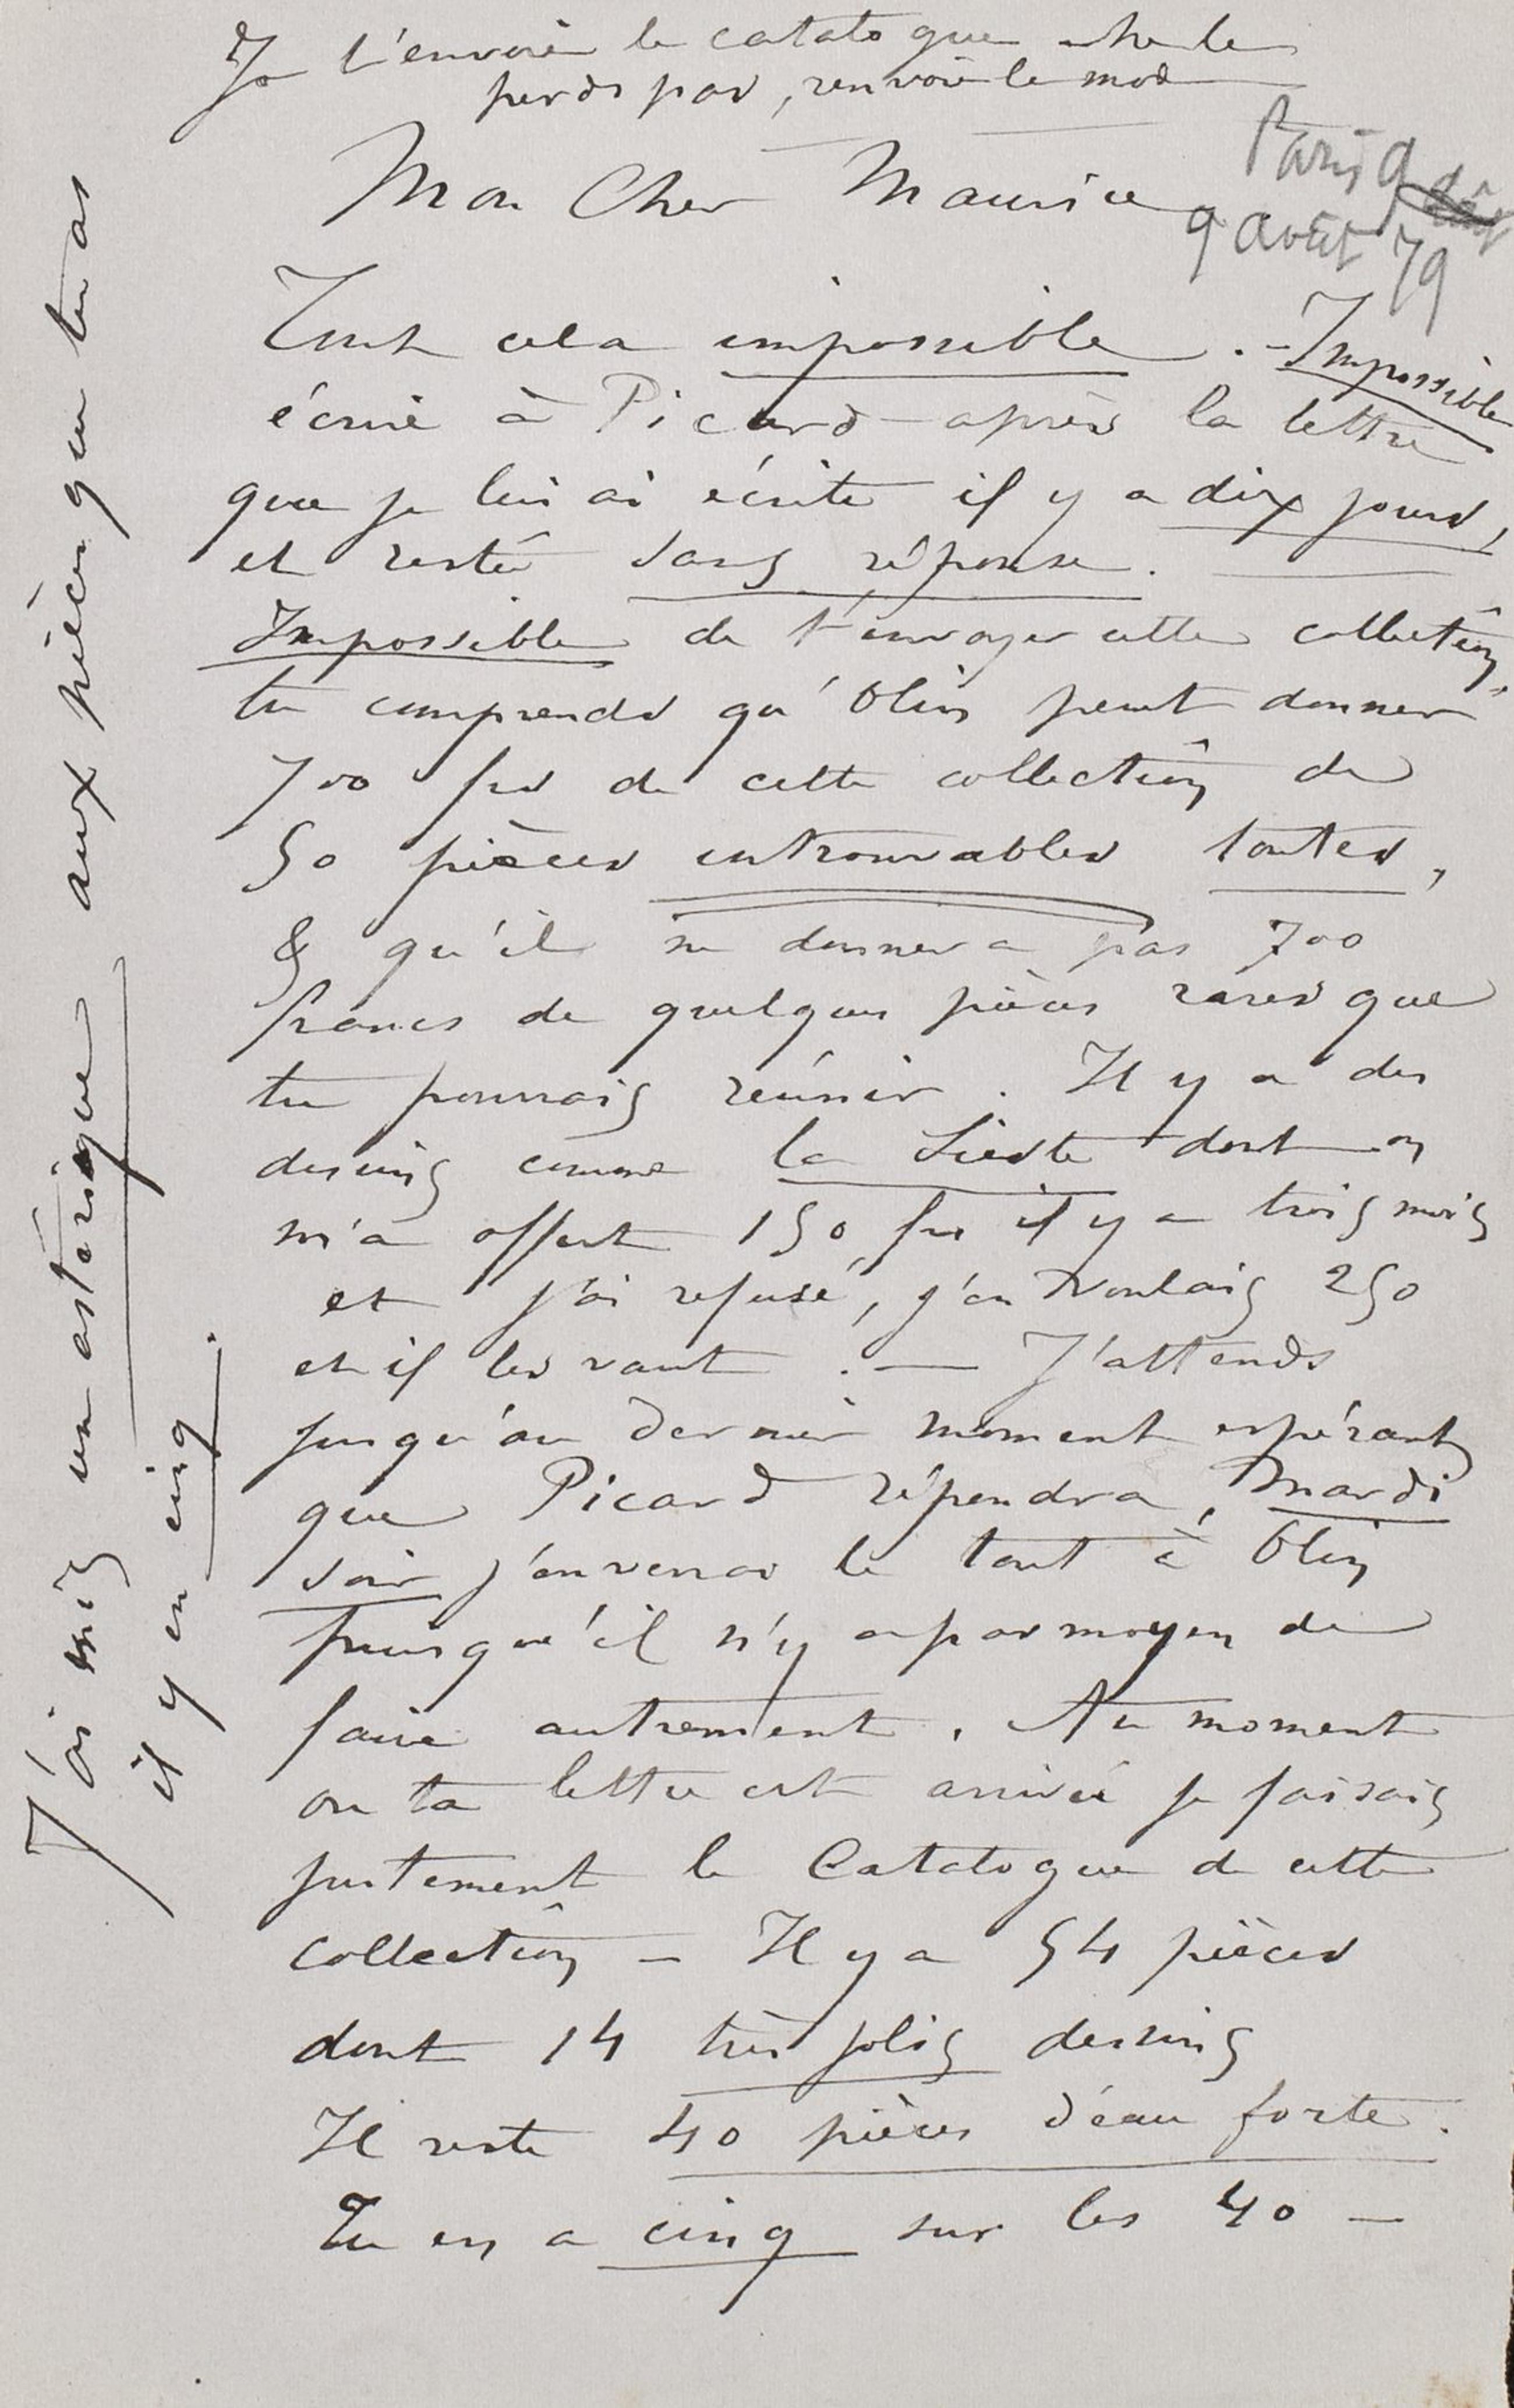 Je t'envoie le catalogue ne le
perds pas, renvoie le moi
Mon Cher Maurice
Paris 9 août
9 août 79
Tout cela impossible. - Impossible
écrire à Picard après la lettre
que je lui ai écrite il y a dix jours,
et restée sans réponse.
Impossible de t'envoyer cette collection,
tu comprends qu'Olin peut donner
700 frs de cette collection de
50 pièces introuvables toutes,
& qu'il ne donnera pas 700
francs de quelques pièces rares que
tu pourrais réunir. Il y a des
dessins comme la Sieste dont on
m'a offert 150 frs il y a trois mois
et j'ai refusé, j'en voulais 250
et il les vaut. — J'attends
jusqu'au dernier moment espérant
que Picard répondra, mardi
soir j'enverrai le tout à Olin
puisqu'il n'y a pas moyen de
faire autrement. Au moment
ou ta lettre est arrivée je faisais
justement le Catalogue de cette
collection - Il y a 54 pièces
dont 14 très jolis dessins
Il reste 40 pièces d'eau forte.
Tu en a cinq sur les 40 —
J'ai mis un astérisque aux pièces que tu as
il y en cinq.